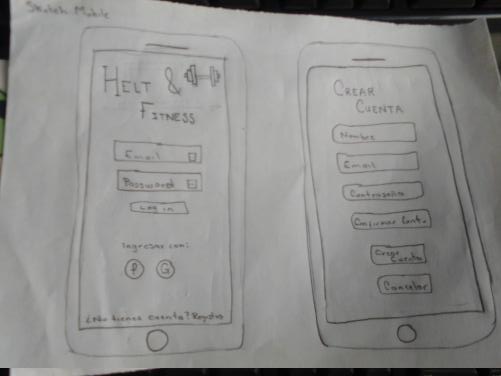 Sketch Mobile
HELT &
FITNESS
Email
Password
Log in
Ingresar con:
f G
¿No tienes cuenta? Registro
CREAR
CUENTA
Nombre
Email
Contraseña
Confirmar Cont.
Crear
Cuenta
Cancelar